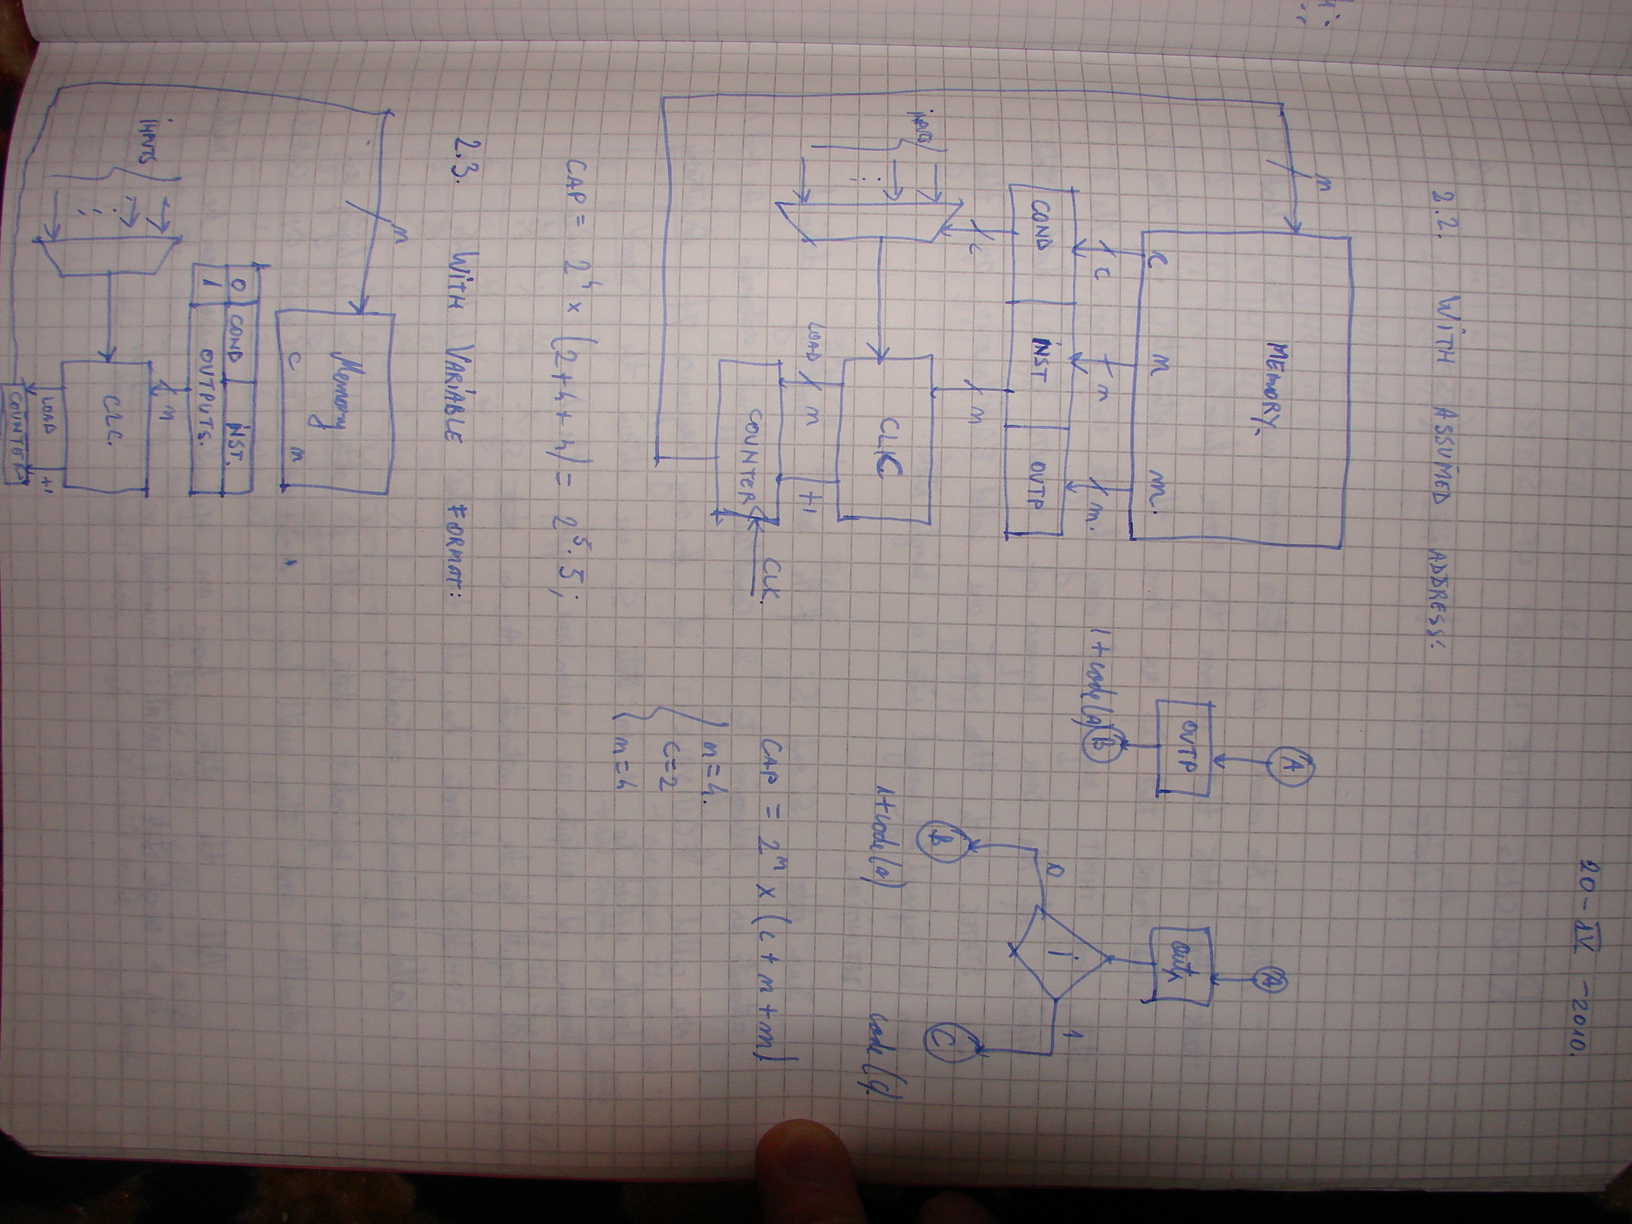 20-IV-2010.
2.2. WITH ASSUMED ADDRESS:
n
MEMORY
c n m.
c n m.
COND INST OUTP
c
n
CLC
LOAD n +1
COUNTER
CLK.
A
OUTP
B
1+code(A)
A
outp
i
0 1
B C
1+code(A) code(C)
CAP = 2^n x (c+n+m)
n=4.
c=2
m=4
CAP = 2^4 x (2+4+4) = 2^5.5;
2.3. WITH VARIABLE FORMAT:
n
Memory
c n
0 COND INST.
1 OUTPUTS.
n
INPUTS
CLC.
LOAD +1
COUNTER